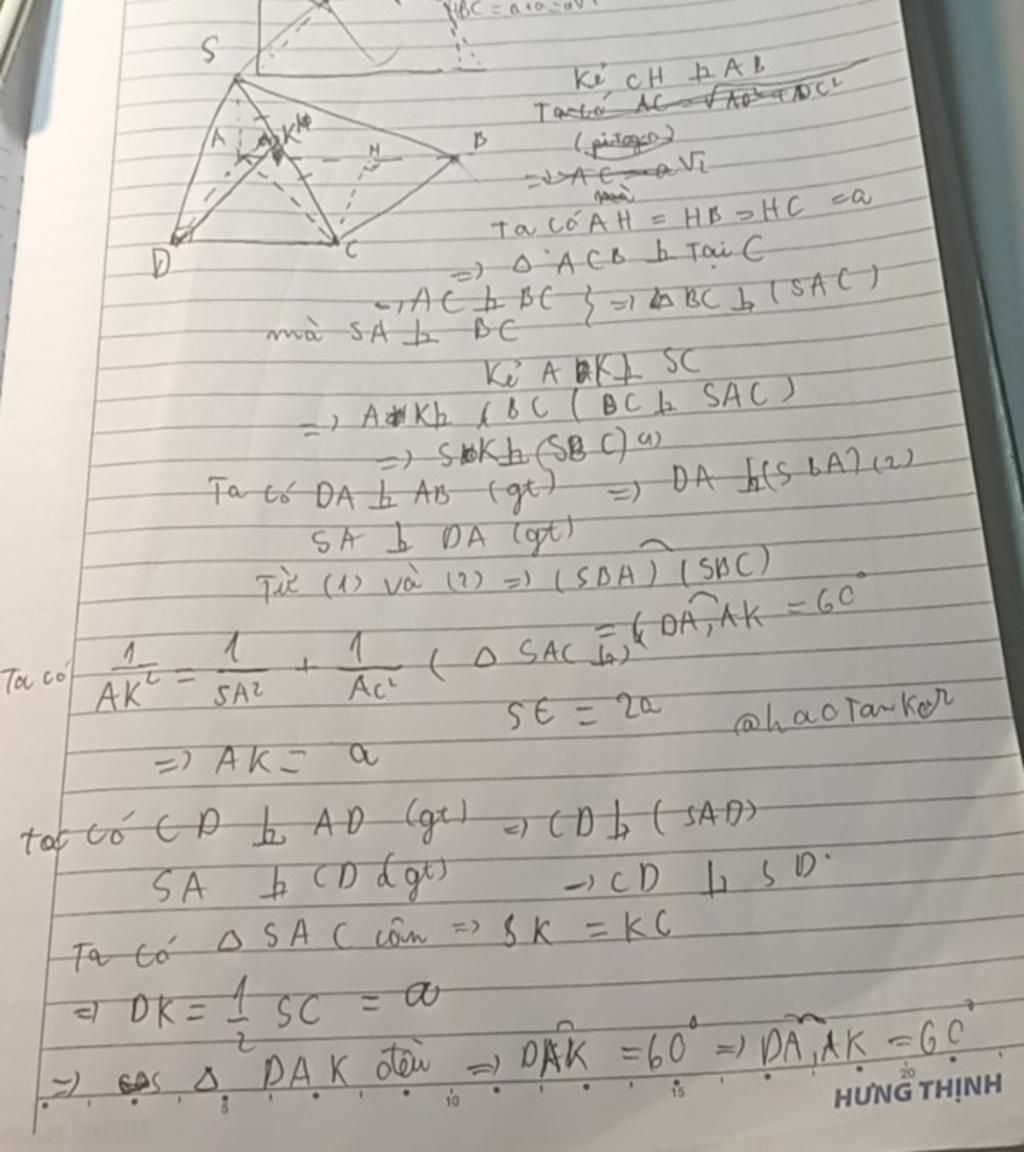 HBC = a+a = a√
S
A
K
H
B
D
C
Kẻ CH ⊥ AB
Ta có AC = √AD² + DC²
(pitago)
=> AC = a√2
mà
Ta có AH = HB = HC = a
=> Δ ACB ⊥ Tại C
=> AC ⊥ BC } => BC ⊥ (SAC)
mà SA ⊥ BC
Kẻ AK ⊥ SC
=> AK ⊥ BC (BC ⊥ SAC)
=> SK ⊥ (SBC) (1)
Ta có DA ⊥ AB (gt) => DA ⊥ (SBA) (2)
SA ⊥ DA (gt)
Từ (1) và (2) => (SBA) (SBC)
= (DA, AK = 60°
Ta có 1/AK² = 1/SA² + 1/AC² (Δ SAC ⊥)
SC = 2a
@haoTanker
=> AK = a
Ta có CD ⊥ AD (gt) => CD ⊥ (SAD)
SA ⊥ CD (gt) -> CD ⊥ SD
Ta có Δ SAC cân => SK = KC
=> DK = 1/2 SC = a
=> Δ DAK đều => DAK = 60° => DA, AK = 60°
5 10 15 20
HƯNG THỊNH